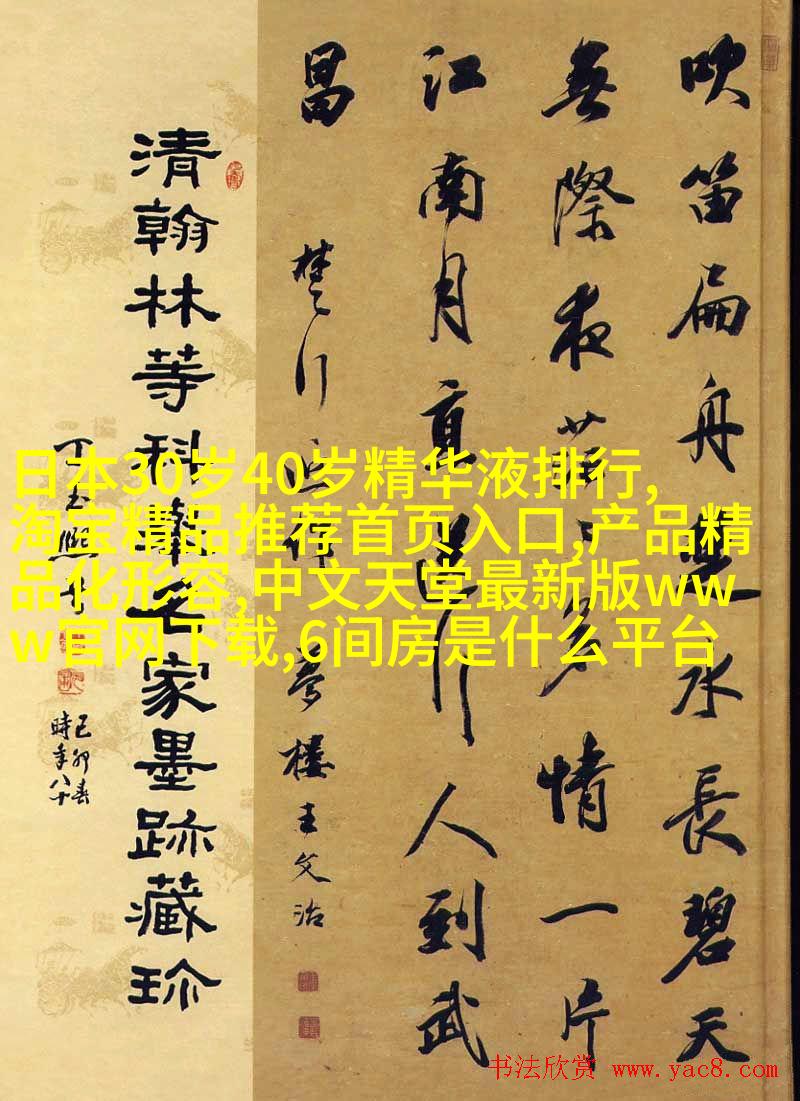 吹笛扁舟水長碧天
無際夜茫茫多情一片
江南月直送行人到武
昌
楚行近作 夢樓王文治
清翰林等科舉名家墨跡藏珍
丁玉熙
己卯春
時年八十
日本30岁40岁精华液排行,
淘宝精品推荐首页入口,产品精
品化形容,中文天堂最新版ww
w官网下载,6间房是什么平台
书法欣赏 www.yac8.com